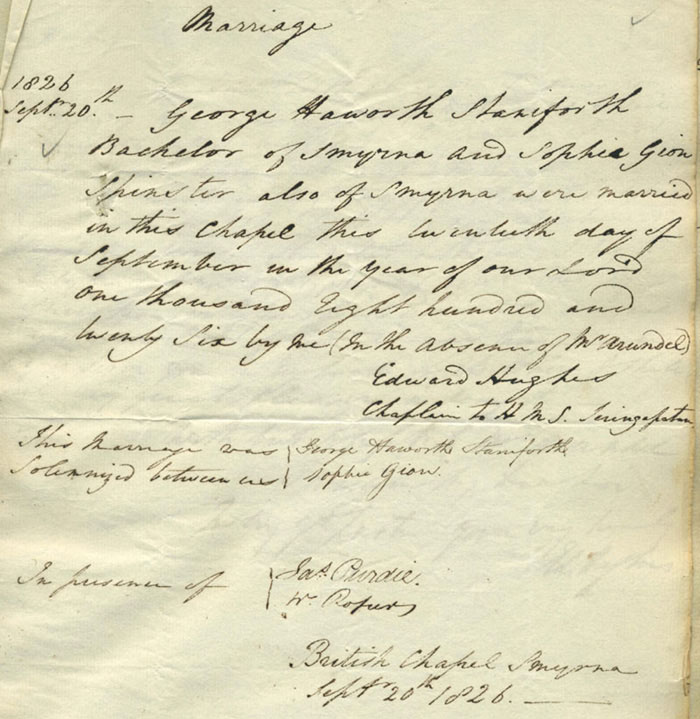 Marriage
1826
Septr. 20.th – George Haworth Staniforth
Bachelor of Smyrna and Sophie Gion
Spinster also of Smyrna were married
in this Chapel this twentieth day of
September in the Year of our Lord
One thousand Eight hundred and
twenty Six by me (In the Absence of Mr Arundel)
Edward Hughes
Chaplain to H M S. Seringapatam
This Marriage was
Solemnized between us
George Haworth Staniforth
Sophie Gion.
In presence of
Jas. Purdie.
Wm.
British Chapel Smyrna
Septr 20th 1826.